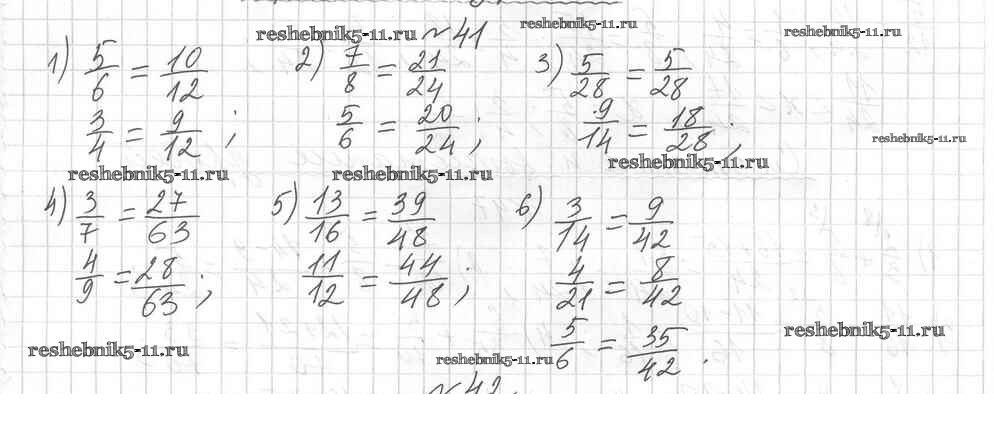 reshebnik5-11.ru №41 reshebnik5-11.ru reshebnik5-11.ru
1) 5/6 = 10/12 2) 7/8 = 21/24 3) 5/28 = 5/28
3/4 = 9/12 ; 5/6 = 20/24 ; 9/14 = 18/28 ;
reshebnik5-11.ru
reshebnik5-11.ru reshebnik5-11.ru reshebnik5-11.ru
4) 3/7 = 27/63 5) 13/16 = 39/48 6) 3/14 = 9/42
4/9 = 28/63 ; 11/12 = 44/48 ; 4/21 = 8/42
5/6 = 35/42 .
reshebnik5-11.ru reshebnik5-11.ru reshebnik5-11.ru
№42.